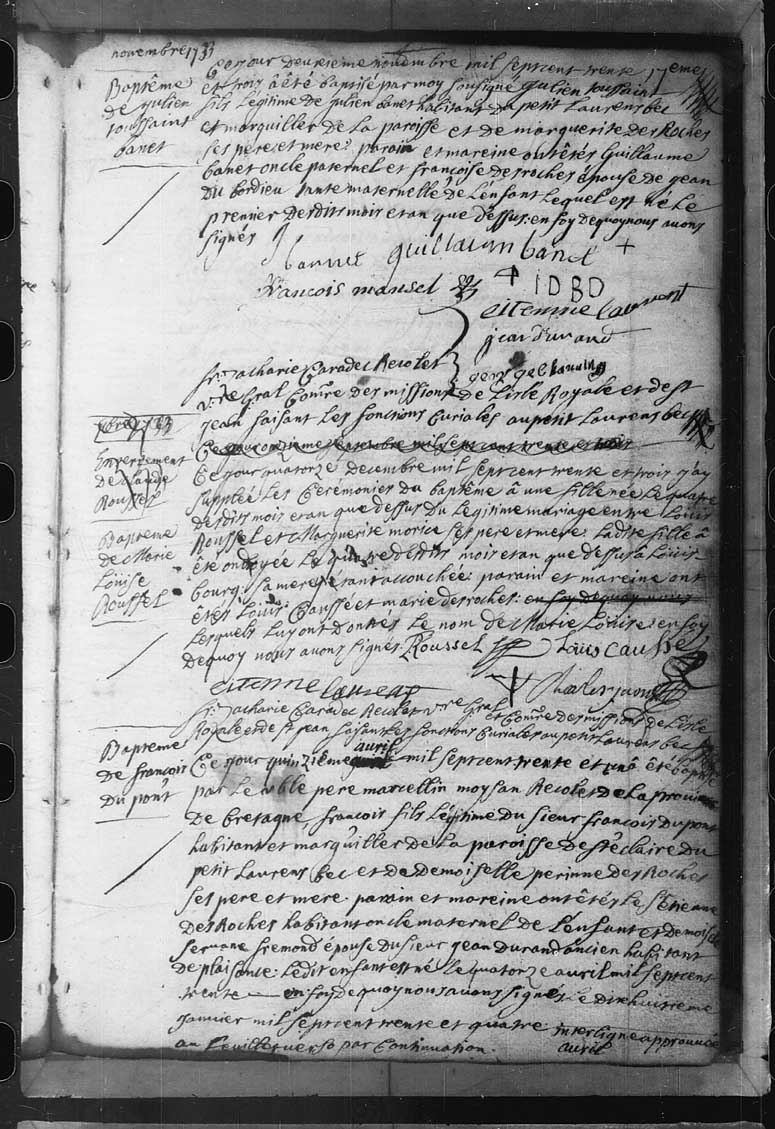 novembre 1733
Baptême
de Julien
toussaint
banet
Ce jour deuxieme novembre mil septcent trente
et trois â été baptisé par moy soussigné Julien toussaint
fils legitime de Julien banet habitant du petit Laurens bec
et marguiller de La paroisse et de marguerite Des Roches
ses pere et mere: parain et mareine ont êtés Guillaume
banet oncle paternel et françoise desroches épouse de jean
Du bordieu tante maternelle de L'enfant Lequel est né Le
premier desdits mois et an que dessus: en foy dequoy nous avons
signés
banet guillaum banet +
françois mansel + IDBD
eitenne laurent
jean durand
fr. Zacharie Caradec Recolet
v.re Gral Com.re des missions de L'isle Royale et de st
jean faisant Les fonctions Curiales au petit Laurens bec
Enterrement
de Claude
Roussel
Ce jour quatorze decembre mil septcent trente et trois j'ay
supplée Les Cerémonies du baptême â une fille née Le quatre
desdits mois et an que dessus du Legitime mariage entre Louis
Roussel et Marguerite morice ses pere et mere: Ladite fille â
Bapteme
de Marie
Loüise
Roussel
été ondoyée Le quatre desdits mois et an que dessus a Loüis
bourg: sa mere y etant accouchée: parain et mareine ont
êtés Loüis Caussé et marie desroches: en foy dequoy nous
Lesquels Luy ont Donnés Le nom de Marie Loüise: en foy
dequoy nous avons signés. Roussel Louis Causse
eitenne laurens
fr. Zacharie Caradec Recolet v.re Gral
et Com.re des missions de L'isle
Royale et de st jean faisant Les fonctions Curiales au petit Laurens bec
Bapteme
de francois
Du pont
avril
Ce jour quinzieme mil septcent trente et un â êté baptisé
par Le R.ble pere marcellin moysan Recolet de La province
de bretagne françois fils Légitime du sieur francois Dupont
habitant et marguiller de La paroisse de Ste Claire du
petit Laurens bec et de Demoiselle perinne des Roches
ses pere et mere. parain et mareine ont êtés Le
Des Roches habitant oncle maternel de L'enfant et demoiselle
servane fremond épouse du sieur jean Durand ancien habitant
de plaisance: Ledit enfant est né Le quatorze avril mil septcent
trente — en foy dequoy nous avons signés Le dixhuitieme
janvier mil septcent trente et quatre interligne approuvée
au feuillet verso par Continuation. avril